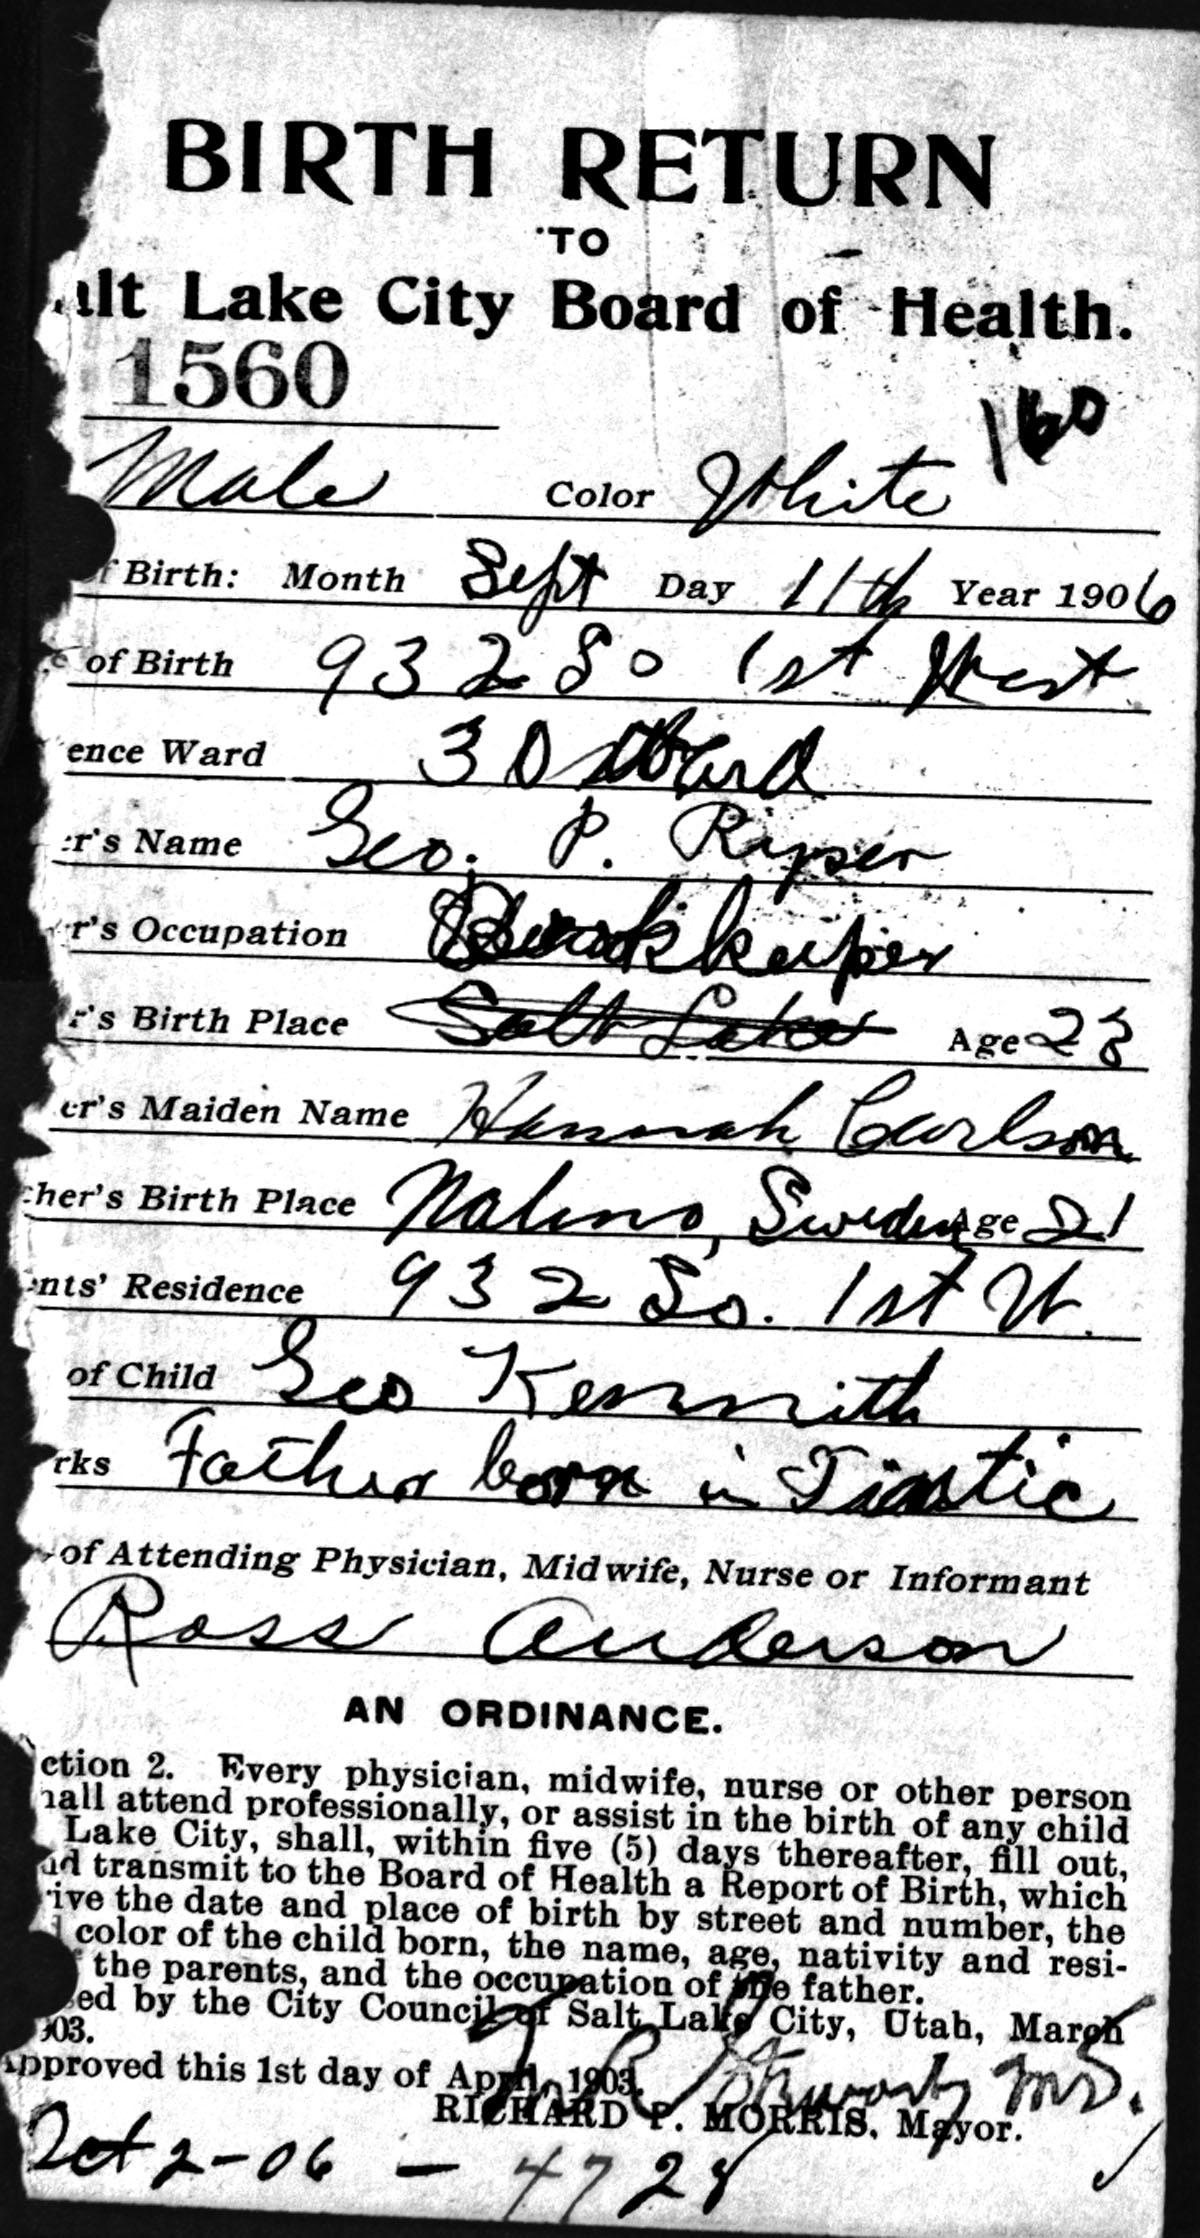 BIRTH RETURN
TO
alt Lake City Board of Health.
1560
160
Male Color White
f Birth: Month Sept Day 11th Year 1906
e of Birth 932 So 1st West
ence Ward 30 Ward
er's Name Geo. P. Rayser
r's Occupation Bookkeeper
r's Birth Place Salt Lake Age 23
er's Maiden Name Hannah Carlson
ther's Birth Place Malmo, Sweden Age 21
ents' Residence 932 So. 1st W.
of Child Geo Kennith
rks Father born in Tintic
of Attending Physician, Midwife, Nurse or Informant
Ross Anderson
AN ORDINANCE.
ction 2. Every physician, midwife, nurse or other person
hall attend professionally, or assist in the birth of any child
Lake City, shall, within five (5) days thereafter, fill out,
nd transmit to the Board of Health a Report of Birth, which
ive the date and place of birth by street and number, the
d color of the child born, the name, age, nativity and resi-
f the parents, and the occupation of the father.
sed by the City Council of Salt Lake City, Utah, March
903.
Approved this 1st day of April, 1903.
M.D.
RICHARD P. MORRIS, Mayor.
Oct 2-06 — 4728